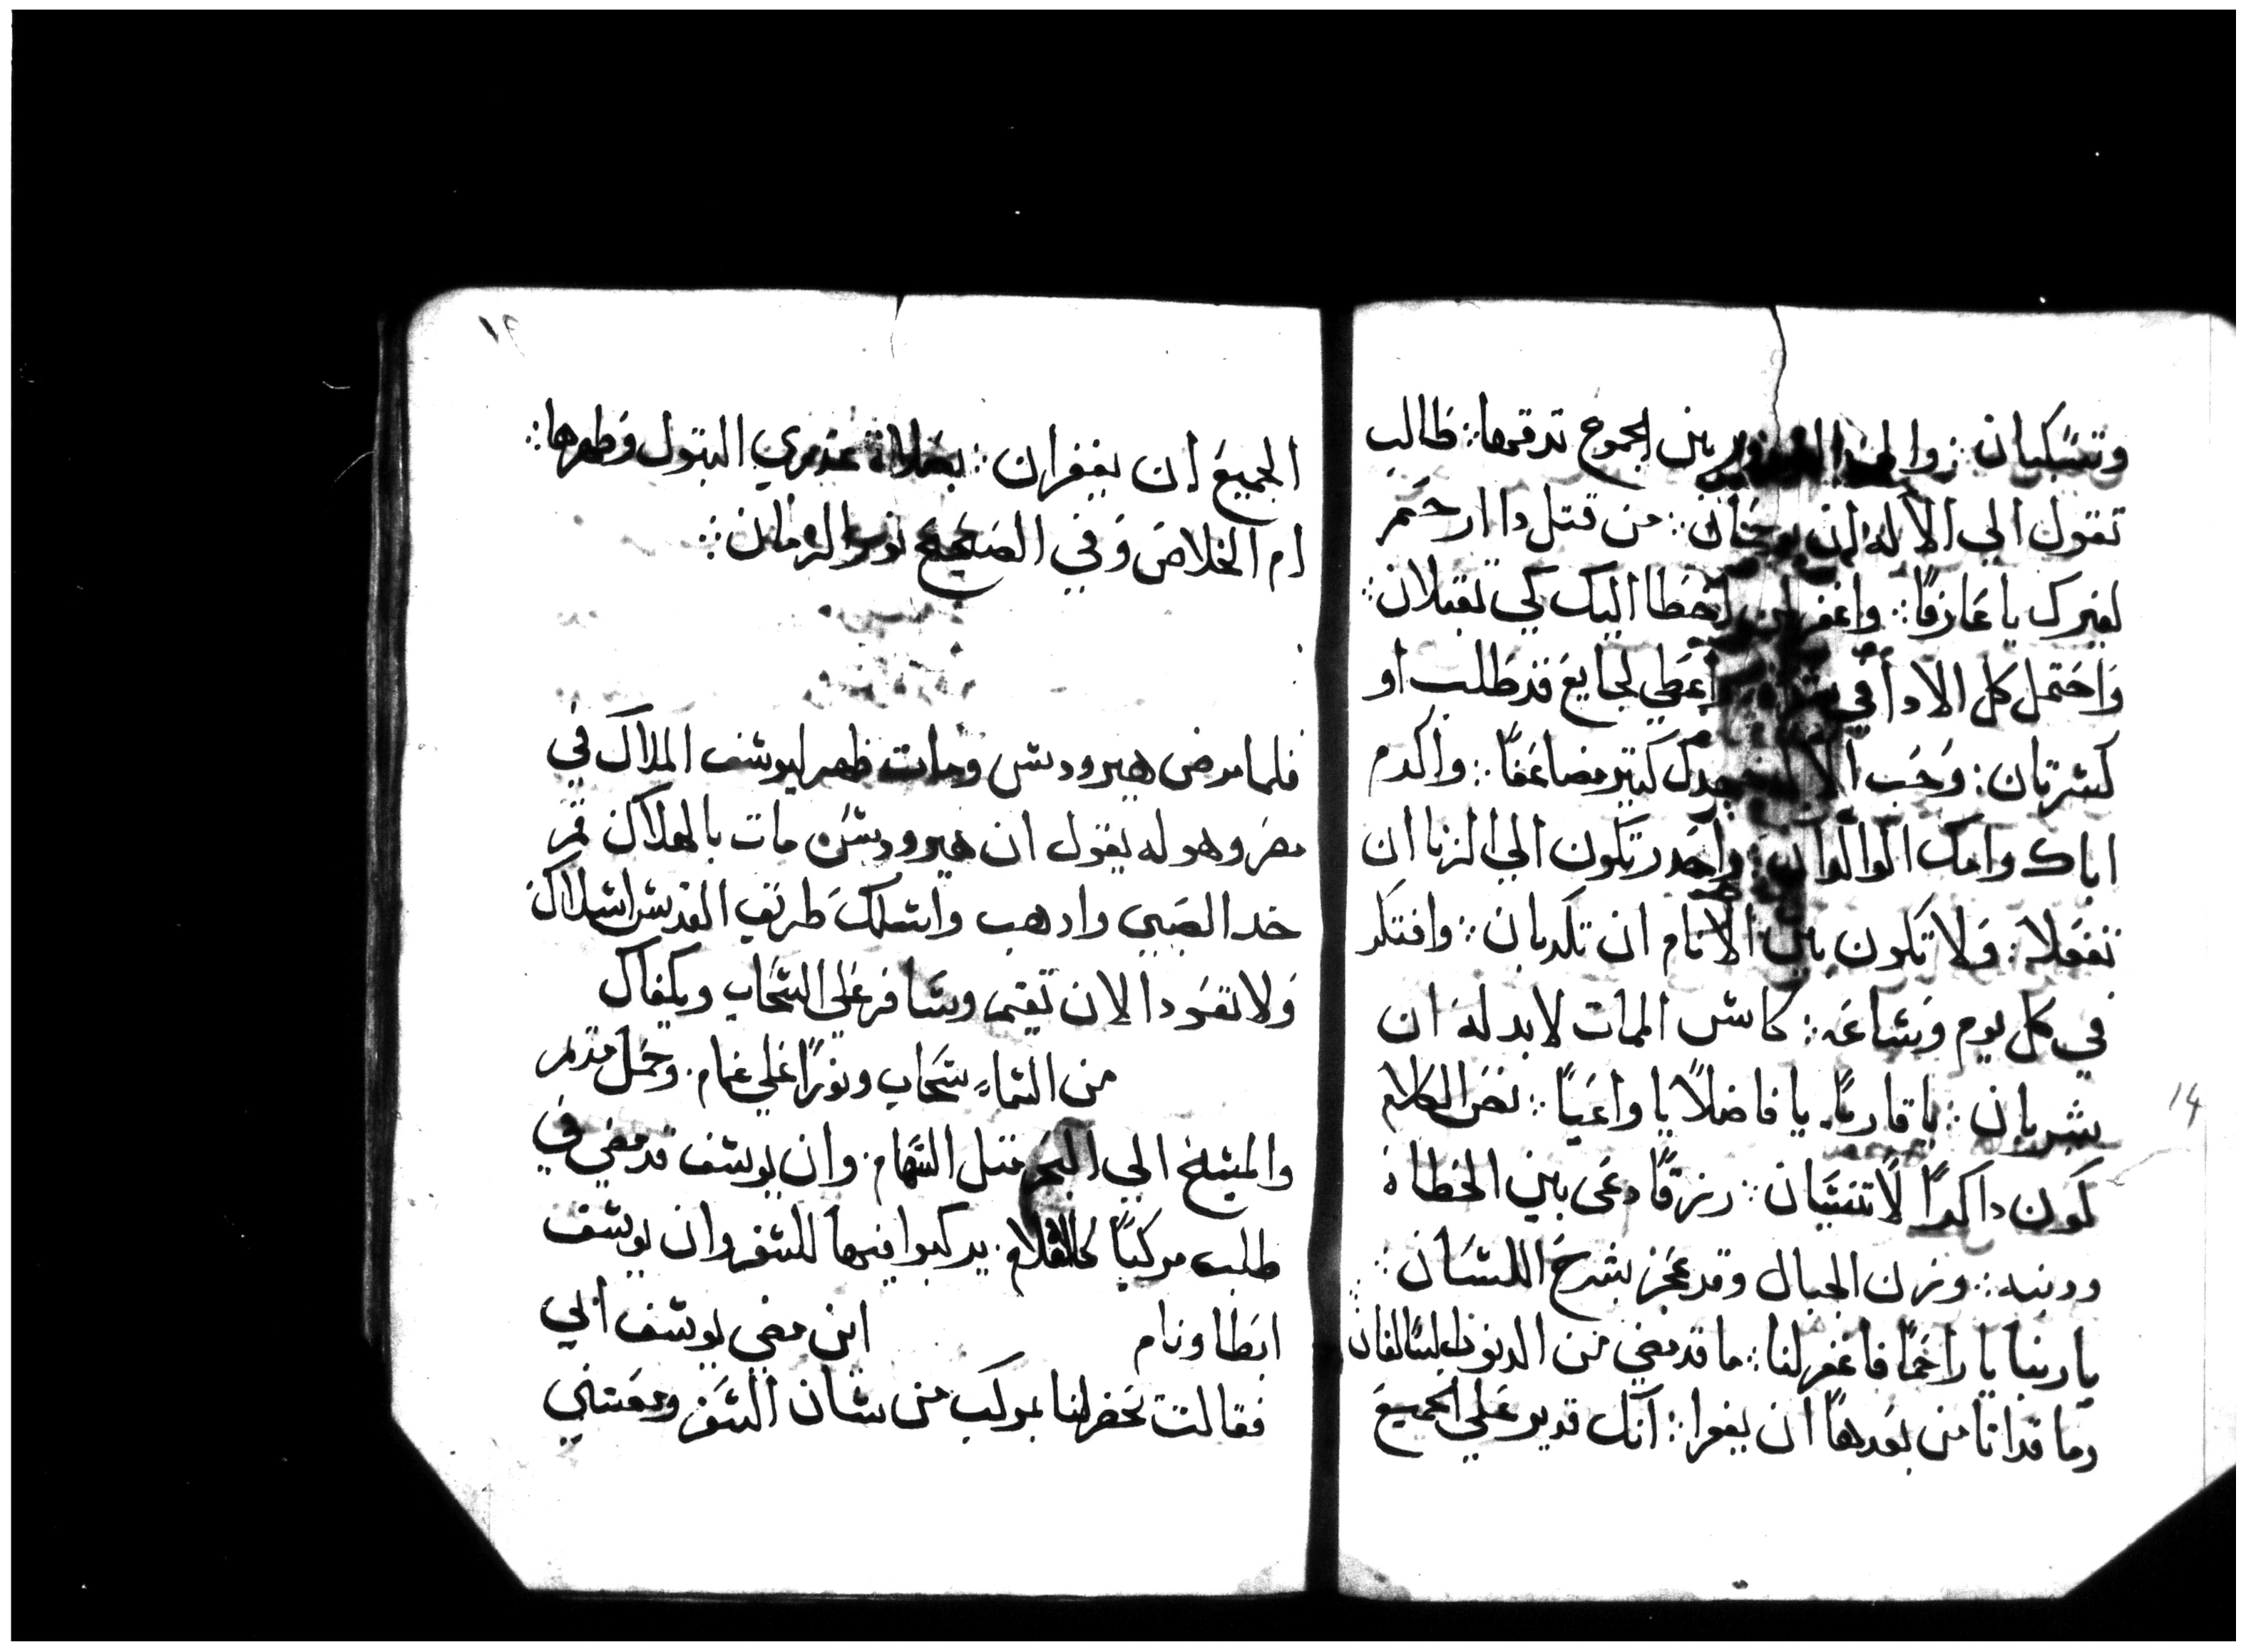 وتسكبان : زوا بين الجموع تدقها : طالب
تقول الي الاله ان يرحمان : من قتل دا ارحم
لغيرك يا عارفًا : واغفر لمن اخطا اليك كي تقبلان :
واحتمل كل الادا في اعطي لجايع قد طلب او
كسرتان : وحب الاله مجدك كتير مضاعفًا : واكرم
اباك وامك الوالدان : واحدر تكون الي الزنا ان
تفعلا : ولا تكون بين الانام ان تكدبان : وافتكر
في كل يوم وساعه : كاس الممات لابد له ان
يشربان : يا قاريًا يا فاضلاً يا واعيًا : نص الكلام
كون داكرًا لاتنسيان : رزقًا دعي بين الخطاة
ودنبه : وزن الجبال وقد عجز بشرح اللسان :
يا ربنا يا راحمًا فاغفر لنا : ما قد مضي من الدنوب السالفان
وما قد اتا من بعدها ان يغفرا : انك قدير علي الجميع
١٤
14
الجميع ان يغفران : بصلاة عدري البتول وطهرها :
ام الخلاص وفي الصحيح نور الزمان :
فلما مرض هيرودس ومات ظهر ليوسف الملاك في
مصر وهو له يقول ان هيرودس مات بالهلاك قم
خد الصبي وادهب واسلك طريق القدس اسلاك
ولا تعود الان تقيم وسافر علي السحاب ويكفاك
من السماء سحاب ونورًا علي غمام . وحمل مريم
والمسيح الي البحر متل السهام . وان يوسف قد مضي في
طلب مركبًا يركبوا فيها للسفر وان يوسف
ابطا ونام اين مضي يوسف ابي
فقالت تحضر لنا بمركب من شان السفر ومعتني